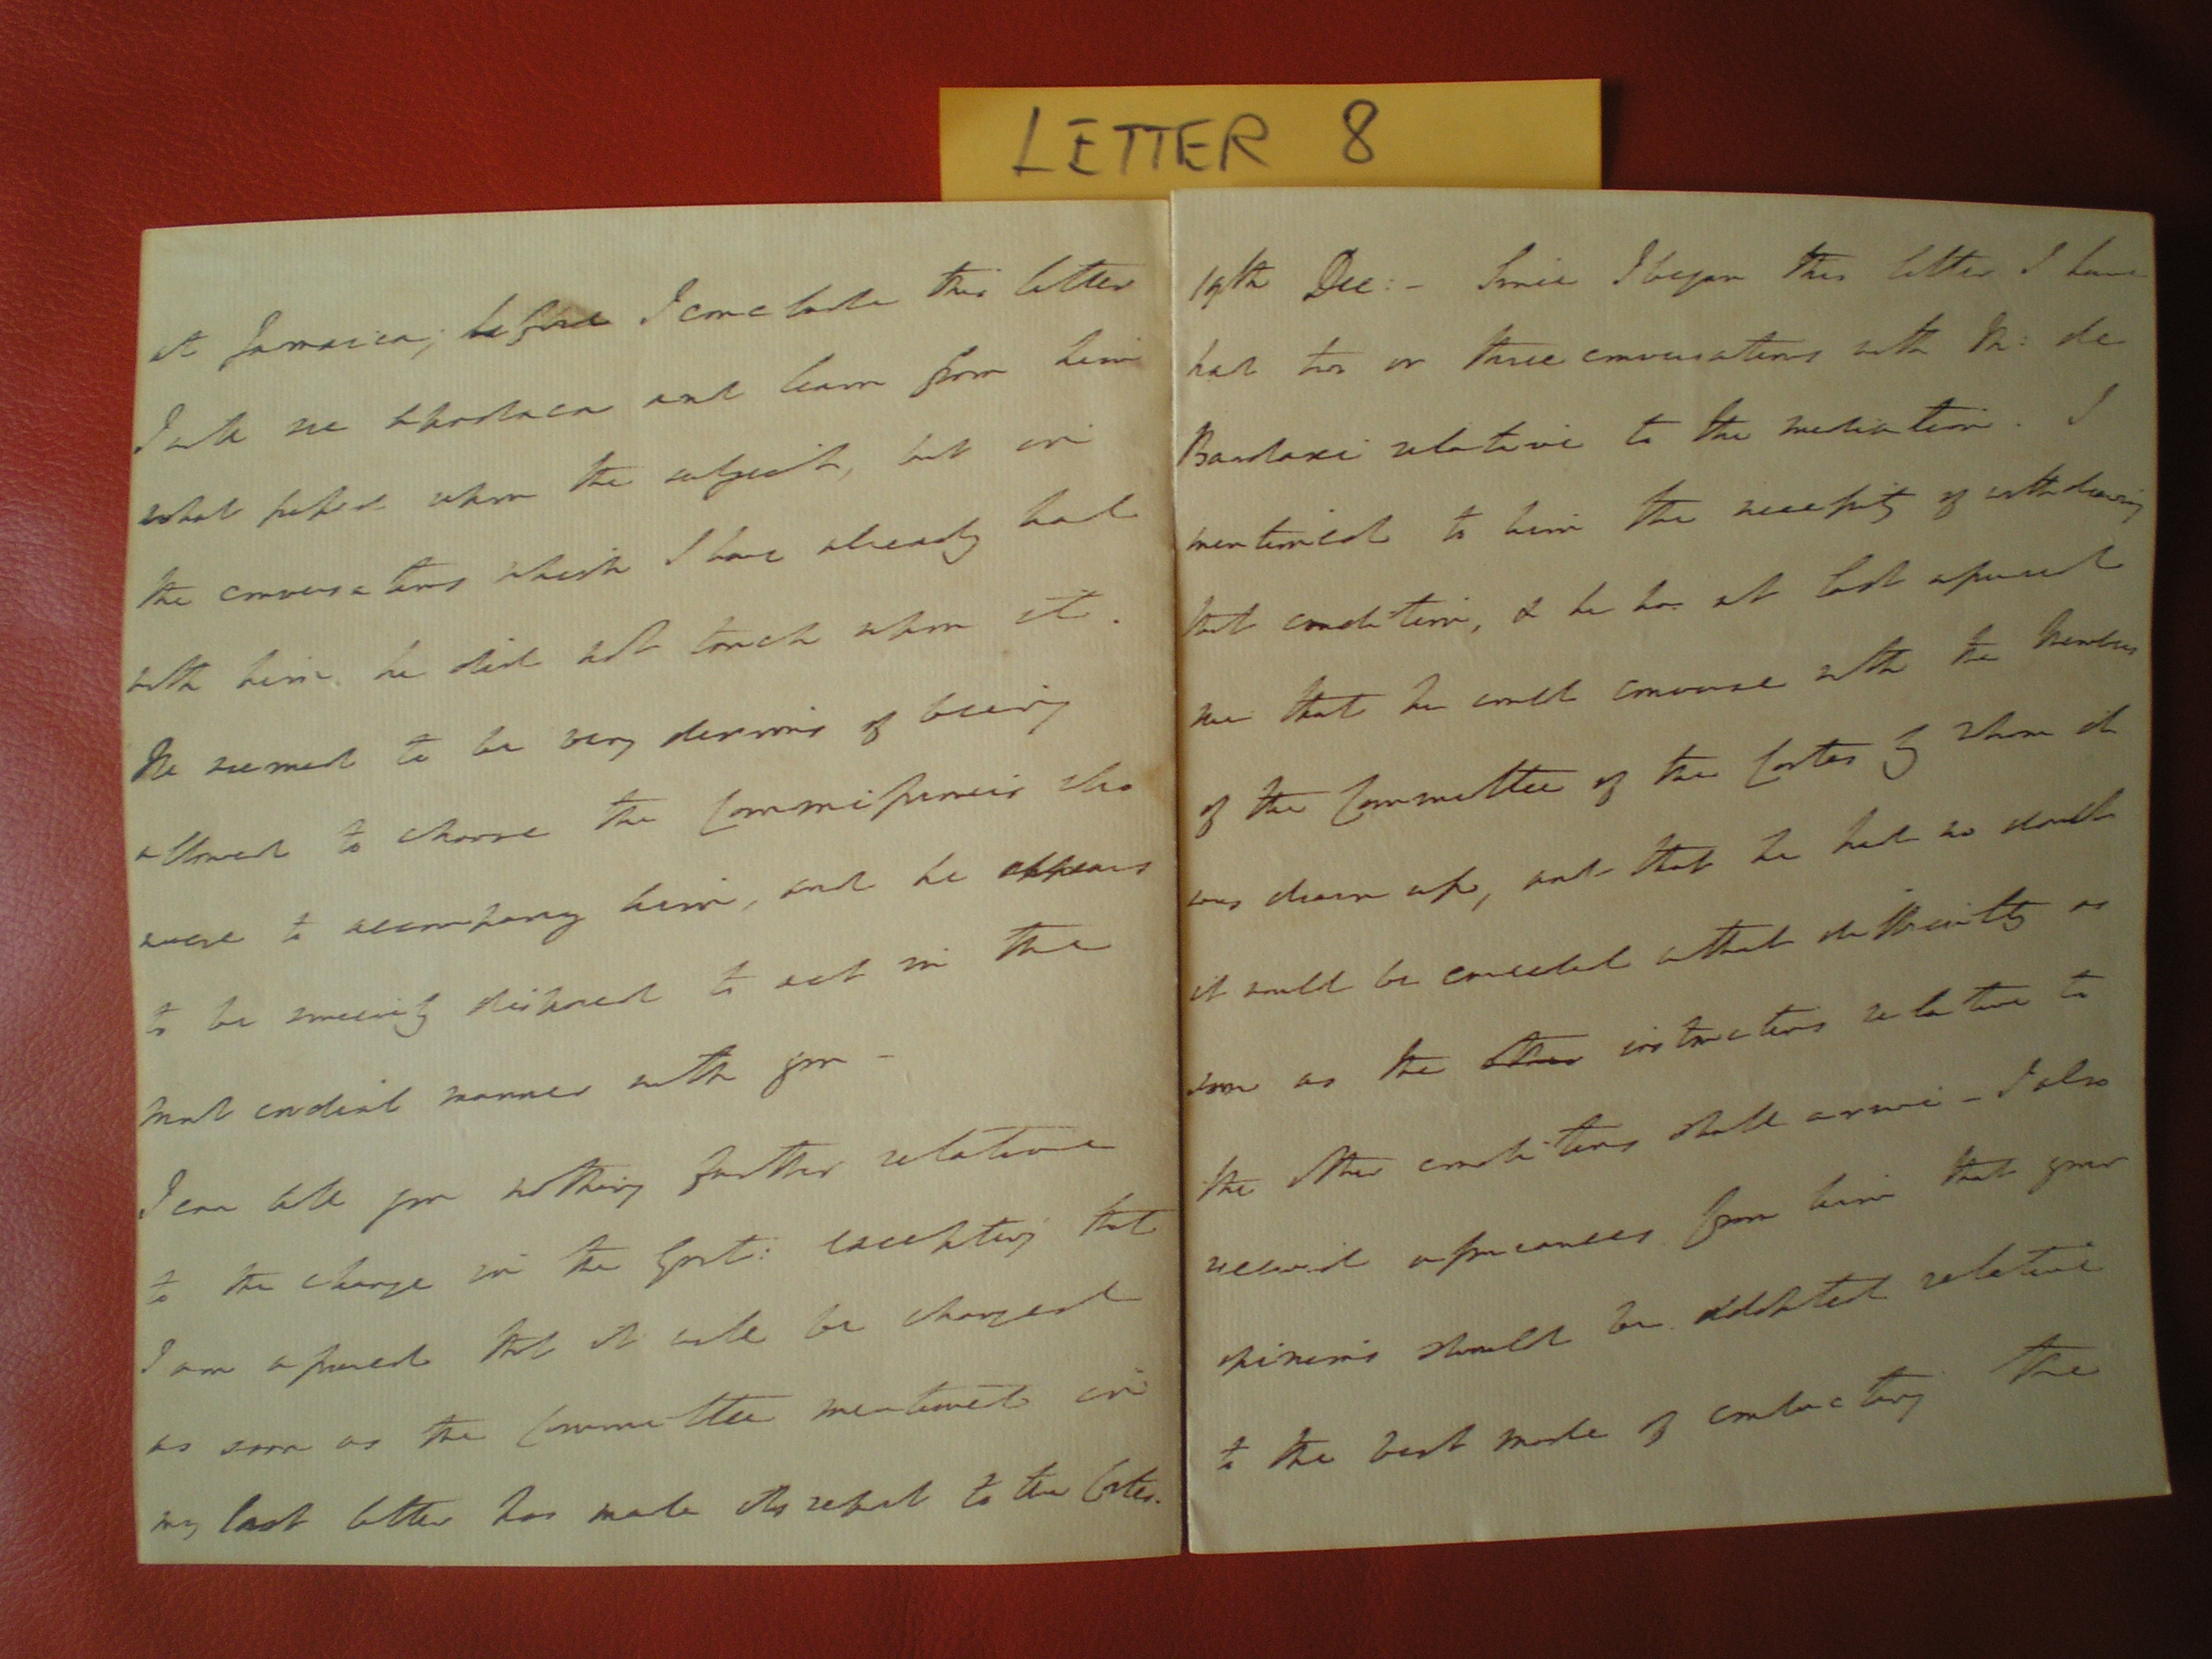 LETTER 8
at Jamaica; before I conclude this letter
I will see Apodaca and learn from him
what passed upon the subject, but in
the conversations which I have already had
with him he did not touch upon it.
He seemed to be very desirous of being
allowed to choose the Commissioners who
were to accompany him, and he appears
to be sincerely disposed to act in the
most cordial manner with you -
I can tell you nothing further relative
to the change in the Govt: excepting that
I am assured that it will be changed
as soon as the Committee mentioned in
my last letter has made its report to the Cortes.
19th Dec: - Since I began this letter I have
had two or three conversations with M: de
Bardaxi relative to the mediation. I
mentioned to him the necessity of withdrawing
that condition, & he has at last assured
me that he could converse with the Members
of the Committee of the Cortes by whom it
was drawn up, and that he had no doubt
it would be conceded without difficulty as
soon as the other instructions relative to
the other conditions shall arrive - I also
received assurances from him that your
opinions should be adopted relative
to the best mode of conducting the